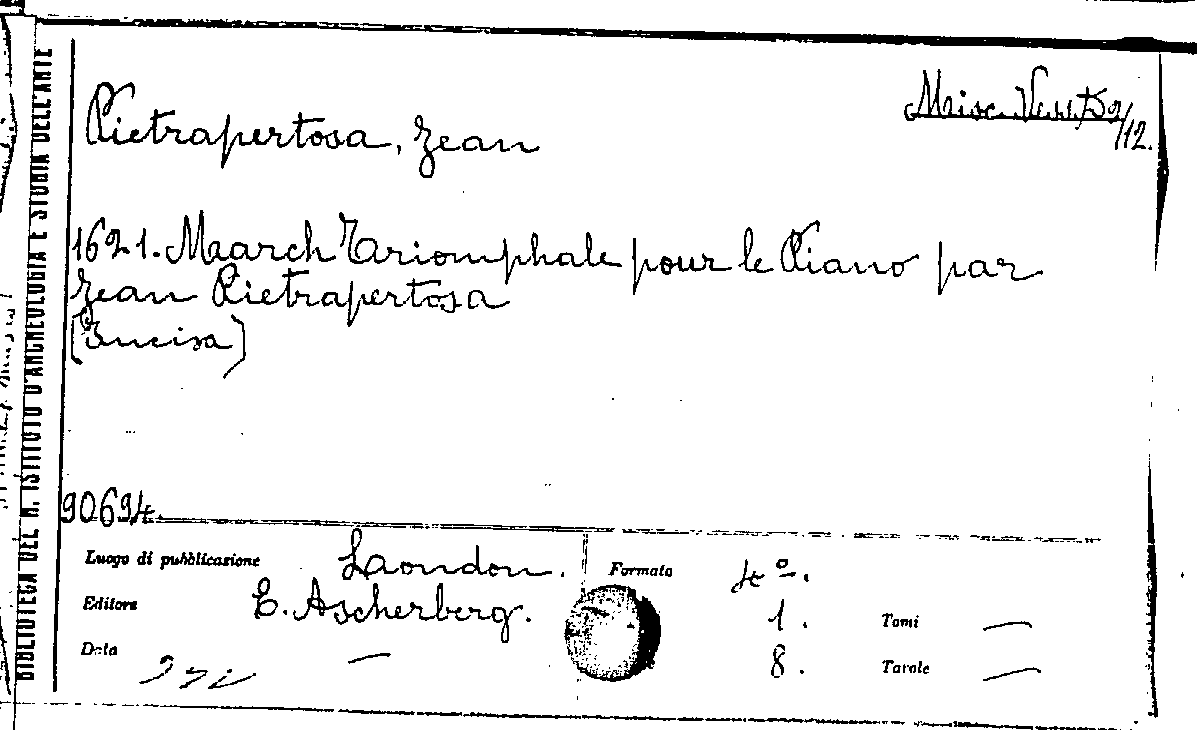 Misc. Vess. D2/12.
Pietrapertosa, Jean
1621. March Triomphale pour le Piano par
Jean Pietrapertosa
(Incisa)
90694.
BIBLIOTECA DEL R. ISTITUTO D'ARCHEOLOGIA E STORIA DELL'ARTE
Luogo di pubblicazione London. Formato 4º.
Editore E. Ascherberg. 1. Tomi —
Data — 8. Tavole —